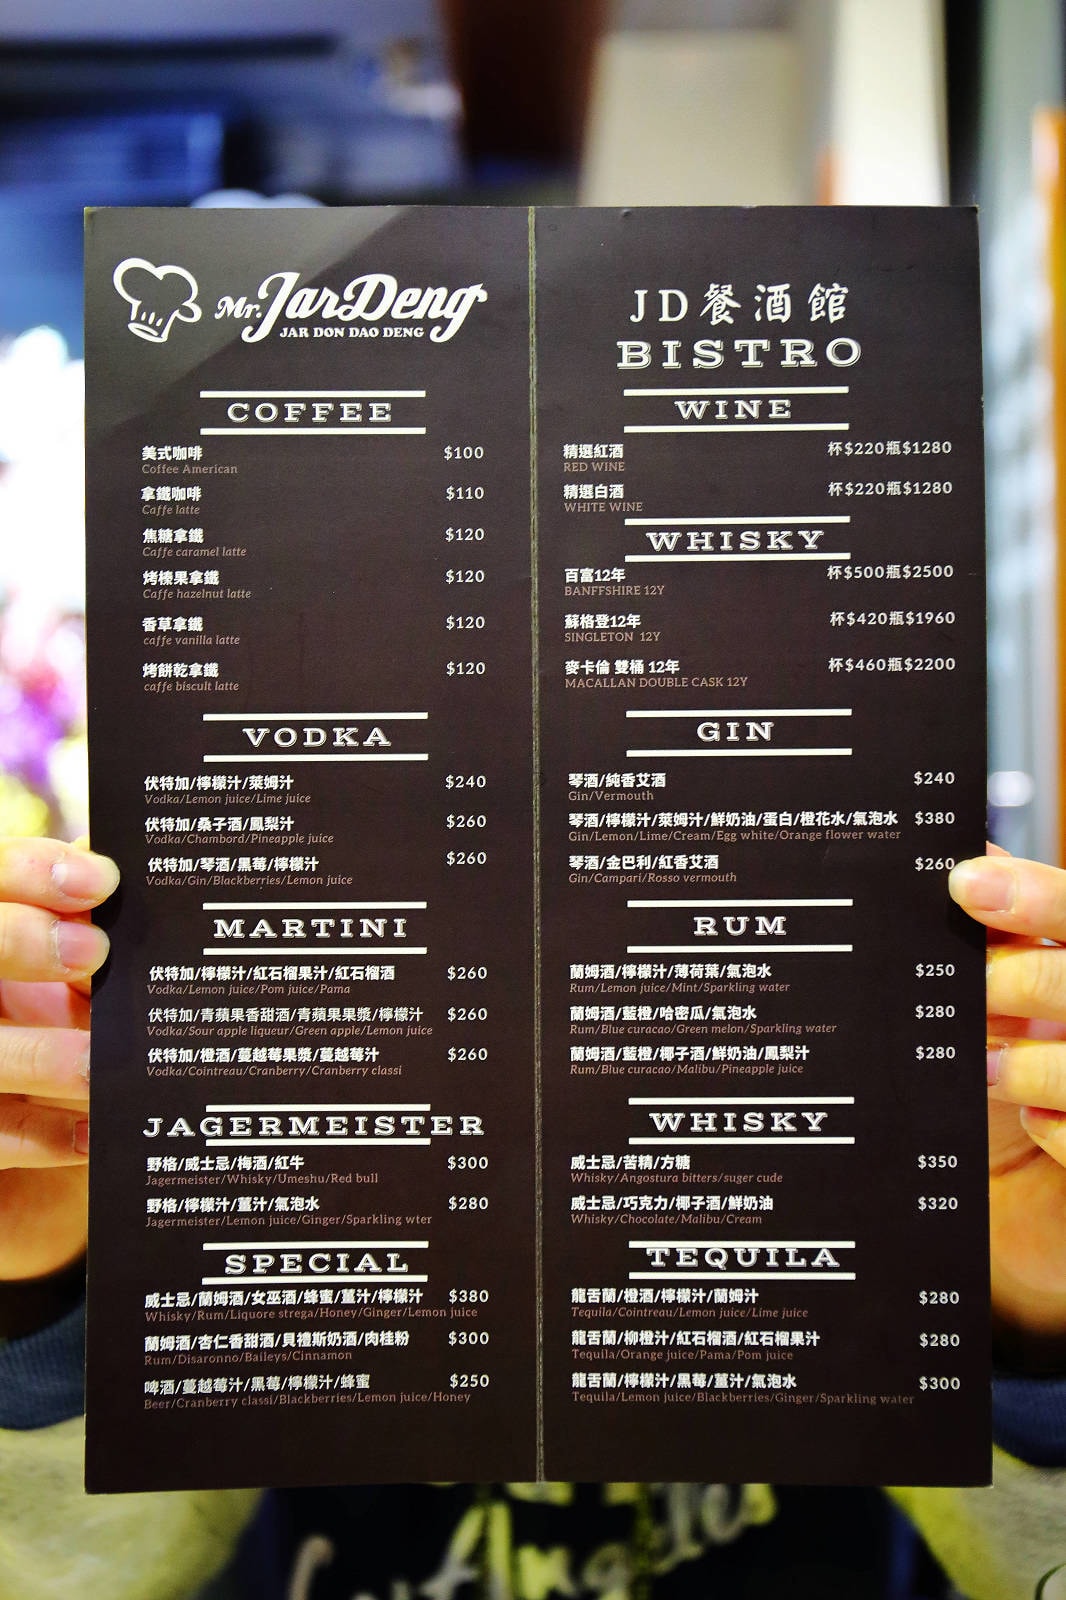 Mr. JarDeng
JAR DON DAO DENG
COFFEE
美式咖啡 $100
Coffee American
拿鐵咖啡 $110
Caffe latte
焦糖拿鐵 $120
Caffe caramel latte
烤榛果拿鐵 $120
Caffe hazelnut latte
香草拿鐵 $120
caffe vanilla latte
烤餅乾拿鐵 $120
caffe biscult latte
VODKA
伏特加/檸檬汁/萊姆汁 $240
Vodka/Lemon juice/Lime juice
伏特加/桑子酒/鳳梨汁 $260
Vodka/Chambord/Pineapple juice
伏特加/琴酒/黑莓/檸檬汁 $260
Vodka/Gin/Blackberries/Lemon juice
MARTINI
伏特加/檸檬汁/紅石榴果汁/紅石榴酒 $260
Vodka/Lemon juice/Pom juice/Pama
伏特加/青蘋果香甜酒/青蘋果果漿/檸檬汁 $260
Vodka/Sour apple liqueur/Green apple/Lemon juice
伏特加/橙酒/蔓越莓果漿/蔓越莓汁 $260
Vodka/Cointreau/Cranberry/Cranberry classi
JAGERMEISTER
野格/威士忌/梅酒/紅牛 $300
Jagermeister/Whisky/Umeshu/Red bull
野格/檸檬汁/薑汁/氣泡水 $280
Jagermeister/Lemon juice/Ginger/Sparkling wter
SPECIAL
威士忌/蘭姆酒/女巫酒/蜂蜜/薑汁/檸檬汁 $380
Whisky/Rum/Liquore strega/Honey/Ginger/Lemon juice
蘭姆酒/杏仁香甜酒/貝禮斯奶酒/肉桂粉 $300
Rum/Disaronno/Baileys/Cinnamon
啤酒/蔓越莓汁/黑莓/檸檬汁/蜂蜜 $250
Beer/Cranberry classi/Blackberries/Lemon juice/Honey
JD餐酒館
BISTRO
WINE
精選紅酒 杯$220瓶$1280
RED WINE
精選白酒 杯$220瓶$1280
WHITE WINE
WHISKY
百富12年 杯$500瓶$2500
BANFFSHIRE 12Y
蘇格登12年 杯$420瓶$1960
SINGLETON 12Y
麥卡倫 雙桶 12年 杯$460瓶$2200
MACALLAN DOUBLE CASK 12Y
GIN
琴酒/純香艾酒 $240
Gin/Vermouth
琴酒/檸檬汁/萊姆汁/鮮奶油/蛋白/橙花水/氣泡水 $380
Gin/Lemon/Lime/Cream/Egg white/Orange flower water
琴酒/金巴利/紅香艾酒 $260
Gin/Campari/Rosso vermouth
RUM
蘭姆酒/檸檬汁/薄荷葉/氣泡水 $250
Rum/Lemon juice/Mint/Sparkling water
蘭姆酒/藍橙/哈密瓜/氣泡水 $280
Rum/Blue curacao/Green melon/Sparkling water
蘭姆酒/藍橙/椰子酒/鮮奶油/鳳梨汁 $280
Rum/Blue curacao/Malibu/Pineapple juice
WHISKY
威士忌/苦精/方糖 $350
Whisky/Angostura bitters/suger cude
威士忌/巧克力/椰子酒/鮮奶油 $320
Whisky/Chocolate/Malibu/Cream
TEQUILA
龍舌蘭/橙酒/檸檬汁/蘭姆汁 $280
Tequila/Cointreau/Lemon juice/Lime juice
龍舌蘭/柳橙汁/紅石榴酒/紅石榴果汁 $280
Tequila/Orange juice/Pama/Pom juice
龍舌蘭/檸檬汁/黑莓/薑汁/氣泡水 $300
Tequila/Lemon juice/Blackberries/Ginger/Sparkling water